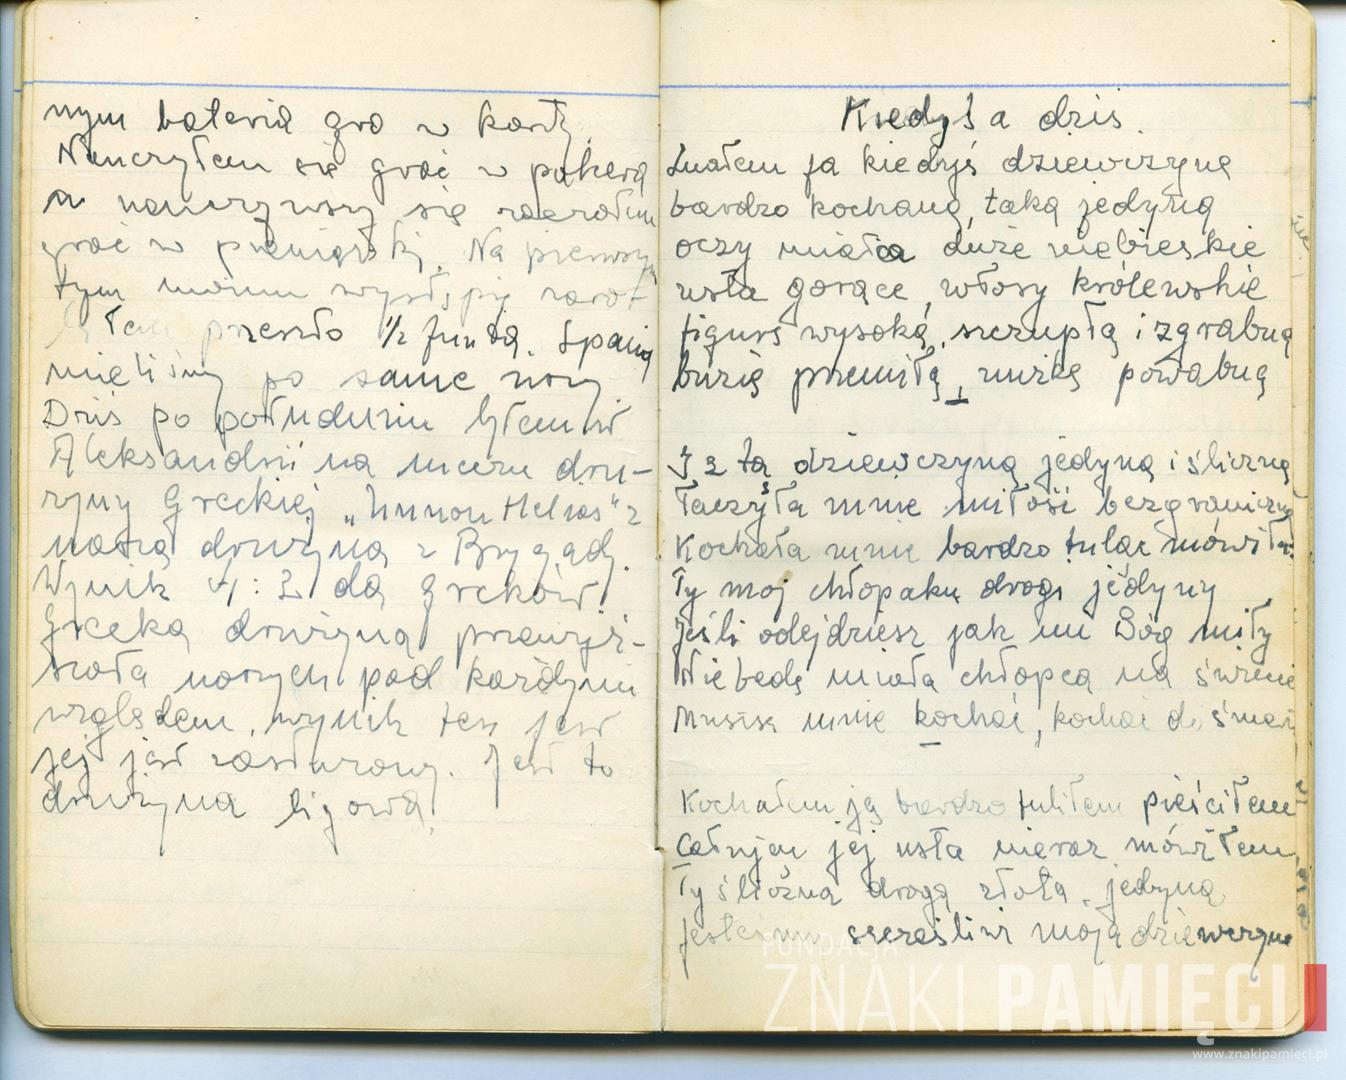 nym bateria gra w karty.
Nauczyłem się grać w pokera
a nauczywszy się zacząłem
grać w pieniążki. Na pierwszy
tym moim występie
przeszło 1/2 funta. Spanie
mieliśmy po same nory
Dziś po południu byłem w
Aleksandrii na meczu dru-
żyny Greckiej „Unnon Helios" z
naszą drużyną z Brygady.
Wynik 4:2 dla greków.
Grecka drużyna przewyż-
szała naszych pod każdym
względem, wynik ten jest
jej jest zasłużony. Jest to
drużyna ligowa.
Kiedyś a dziś.
Znałem ja kiedyś dziewczynę
bardzo kochaną, taką jedyną
oczy miała duże niebieskie
usta gorące, włosy królewskie
figurę wysoką, szczupłą i zgrabną
buzię przemiłą, nużkę powabną
I z tą dziewczyną jedyną i śliczną
Łączyła mnie miłość bezgraniczna
Kochała mnie bardzo tuląc mówiła:
Ty moj chłopaku drogi jedyny
Jeśli odejdziesz jak mi Bóg miły
Nie będę miała chłopca na świecie
Musisz mnie kochać, kochać do śmierci
Kochałem ją bardzo tuliłem pieściłem
Całując jej usta nieraz mówiłem
Ty śliczna droga złota, jedyna
Jesteśmy szczęśliwi moja dziewczyno
FUNDACJA
ZNAKI PAMIĘCI
www.znakipamieci.pl